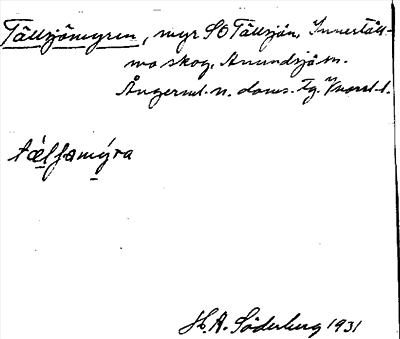 Tällsjömyren, myr SO Tällsjön, Innertäll-
mo skog, Anundsjö sn.
Ångerml. n. doms. Tg.
tä́lʃamýra
H. A. Söderberg 1931